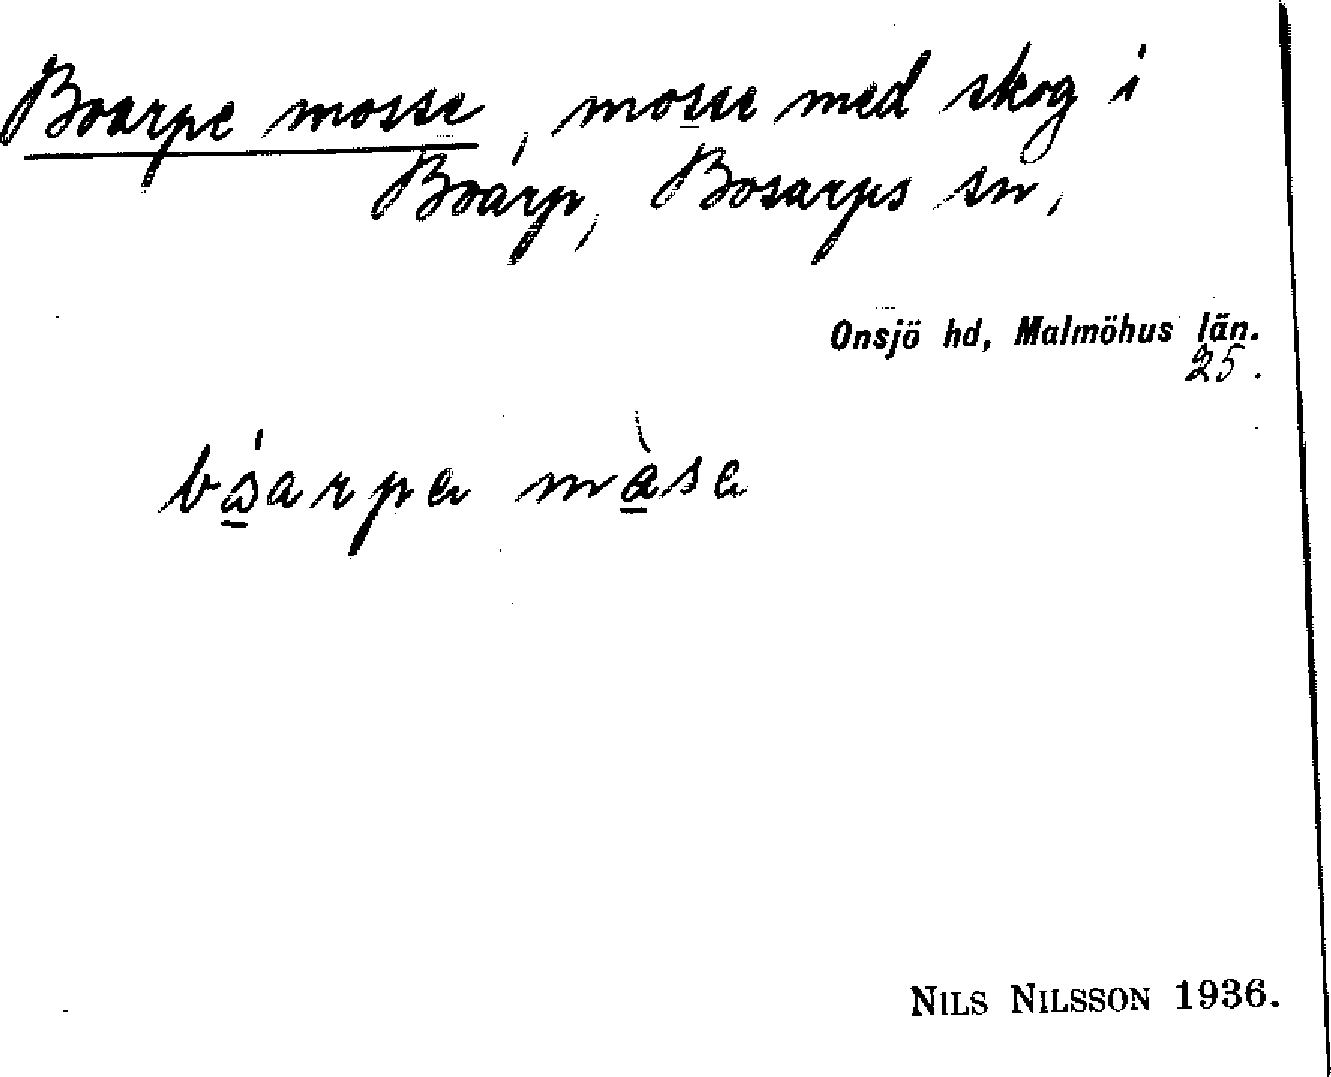 Boarpe mosse, mosse med skog i
Boarp, Bosarps sn,
Onsjö hd, Malmöhus län.
25.
bóarpa màsa
NILS NILSSON 1936.